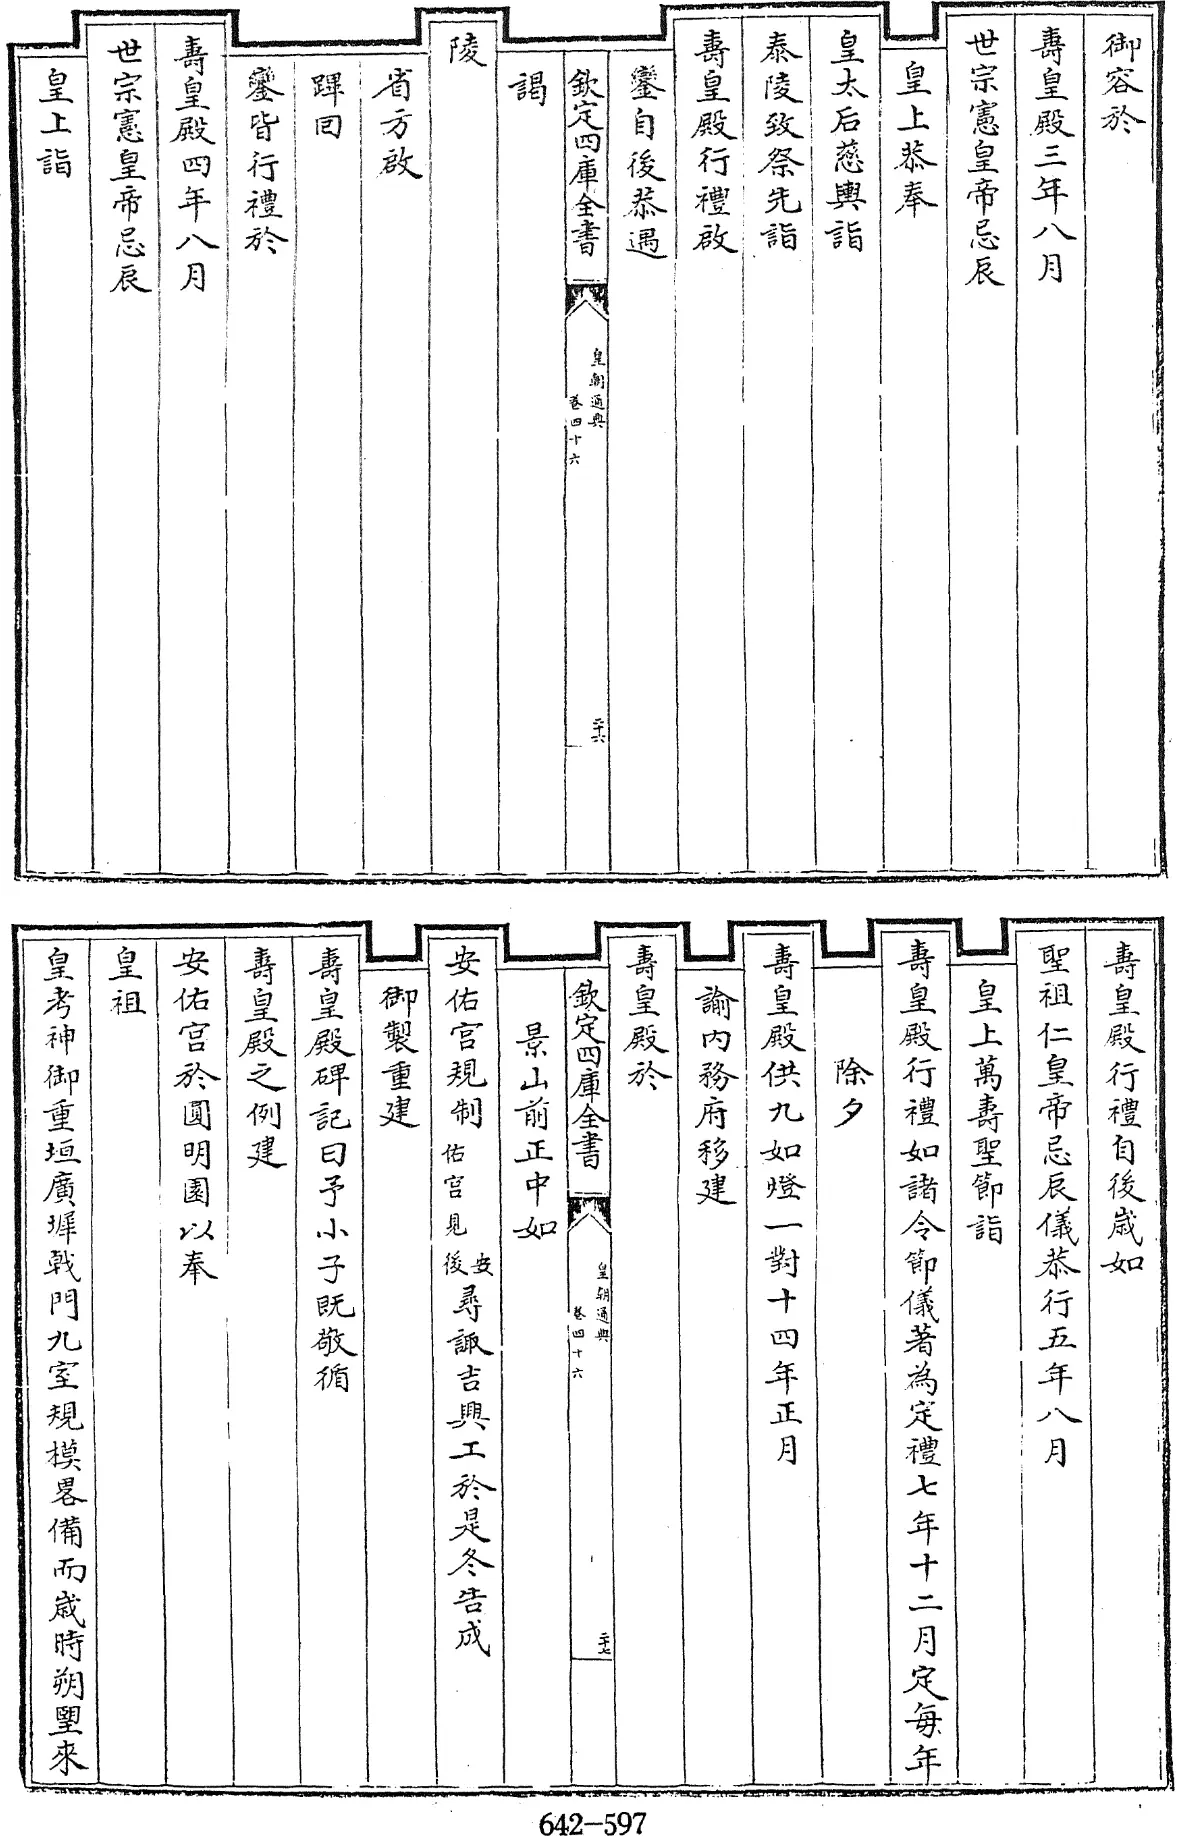 御容於
壽皇殿三年八月
世宗憲皇帝忌辰
皇上恭奉
皇太后慈輿詣
泰陵致祭先詣
壽皇殿行禮啟
鑾自後恭遇
欽定四庫全書
皇朝通典
卷四十六
二十六
謁
陵
省方啟
蹕回
鑾皆行禮於
壽皇殿四年八月
世宗憲皇帝忌辰
皇上詣
壽皇殿行禮自後歲如
聖祖仁皇帝忌辰儀恭行五年八月
皇上萬壽聖節詣
壽皇殿行禮如諸令節儀著為定禮七年十二月定每年
除夕
壽皇殿供九如燈一對十四年正月
諭内務府移建
壽皇殿於
欽定四庫全書
皇朝通典
卷四十六
二十七
景山前正中如
安佑宫規制安佑宫見後尋諏吉興工於是冬告成
御製重建
壽皇殿碑記曰予小子既敬循
壽皇殿之例建
安佑宫於圓明園以奉
皇祖
皇考神御重垣廣墀戟門九室規模畧備而歲時朔朢來
642-597